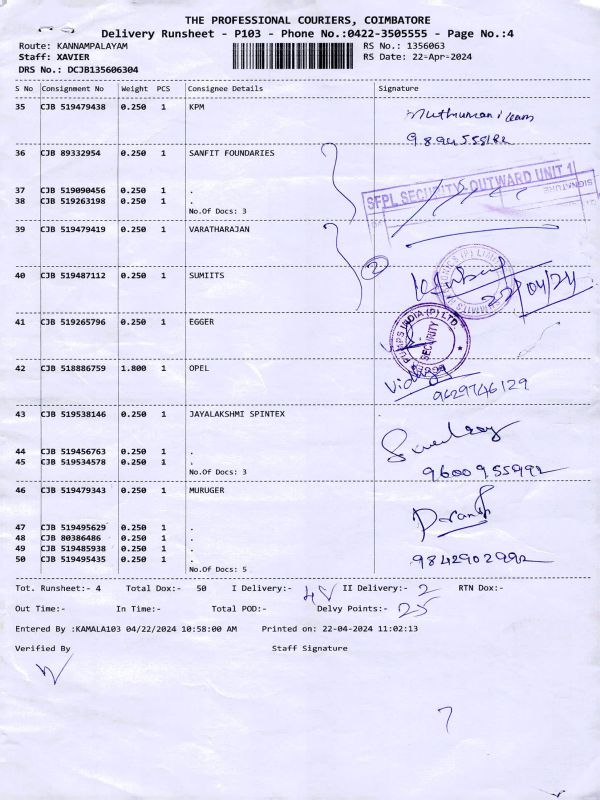 THE PROFESSIONAL COURIERS, COIMBATORE
Delivery Runsheet - P103 - Phone No.:0422-3505555 - Page No.:4
Route: KANNAMPALAYAM RS No.: 1356063
Staff: XAVIER RS Date: 22-Apr-2024
DRS No.: DCJB135606304
S No Consignment No Weight PCS Consignee Details Signature
35 CJB 519479438 0.250 1 KPM
36 CJB 89332954 0.250 1 SANFIT FOUNDARIES
37 CJB 519090456 0.250 1 .
SFPL SECURITY-OUTWARD UNIT 1
SIGNATURE
38 CJB 519263198 0.250 1 .
No.Of Docs: 3
39 CJB 519479419 0.250 1 VARATHARAJAN
2
40 CJB 519487112 0.250 1 SUMIITS
22/04/24
41 CJB 519265796 0.250 1 EGGER
PUMPS INDIA (P) LTD
SECURITY
42 CJB 518886759 1.800 1 OPEL
9629746129
43 CJB 519538146 0.250 1 JAYALAKSHMI SPINTEX
44 CJB 519456763 0.250 1 .
45 CJB 519534578 0.250 1 .
No.Of Docs: 3
9600955992
46 CJB 519479343 0.250 1 MURUGER
47 CJB 519495629 0.250 1 .
48 CJB 80386486 0.250 1 .
49 CJB 519485938 0.250 1 .
50 CJB 519495435 0.250 1 .
No.Of Docs: 5
9842902992
Tot. Runsheet:- 4 Total Dox:- 50 I Delivery:- 48 II Delivery:- 2 RTN Dox:-
Out Time:- In Time:- Total POD:- Delvy Points:- 25
Entered By :KAMALA103 04/22/2024 10:58:00 AM Printed on: 22-04-2024 11:02:13
Verified By Staff Signature